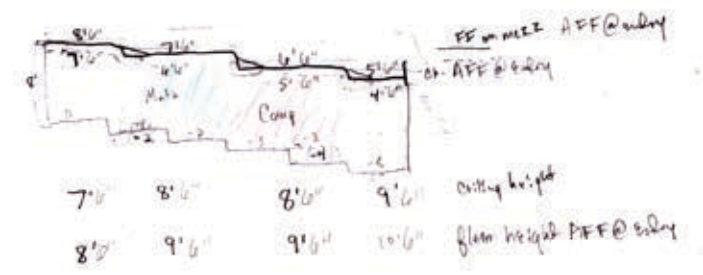 8'6" 7'6" 6'6" 5'6" FF on mezz AFF@entry
7'6" 6'6" 5'6" 4'6" AFF@Entry
8'
Comp
-2 -2
7'6" 8'6" 8'6" 9'6" Ceiling height
8'6" 9'6" 9'6" 10'6" floor height AFF@Entry